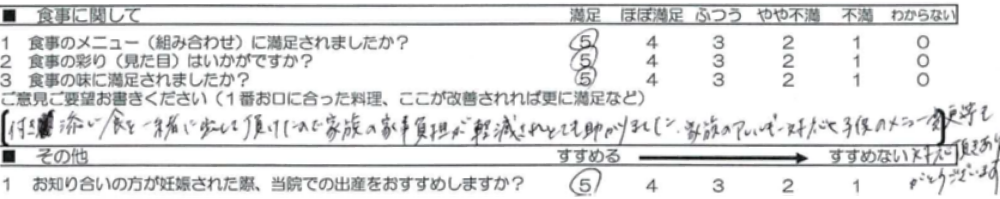 ■ 食事に関して 満足 ほぼ満足 ふつう やや不満 不満 わからない
1 食事のメニュー（組み合わせ）に満足されましたか？ 5 4 3 2 1 0
2 食事の彩り（見た目）はいかがですか？ 5 4 3 2 1 0
3 食事の味に満足されましたか？ 5 4 3 2 1 0
ご意見ご要望お書きください（１番お口に合った料理、ここが改善されれば更に満足など）
付き添い食を一緒に出して頂けたので家族の家事負担が軽減されとても助かりました。家族のアレルギー対応や子供のメニュー変更等も
対応頂きあり
がとうございます
■ その他 すすめる すすめない
1 お知り合いの方が妊娠された際、当院での出産をおすすめしますか？ 5 4 3 2 1